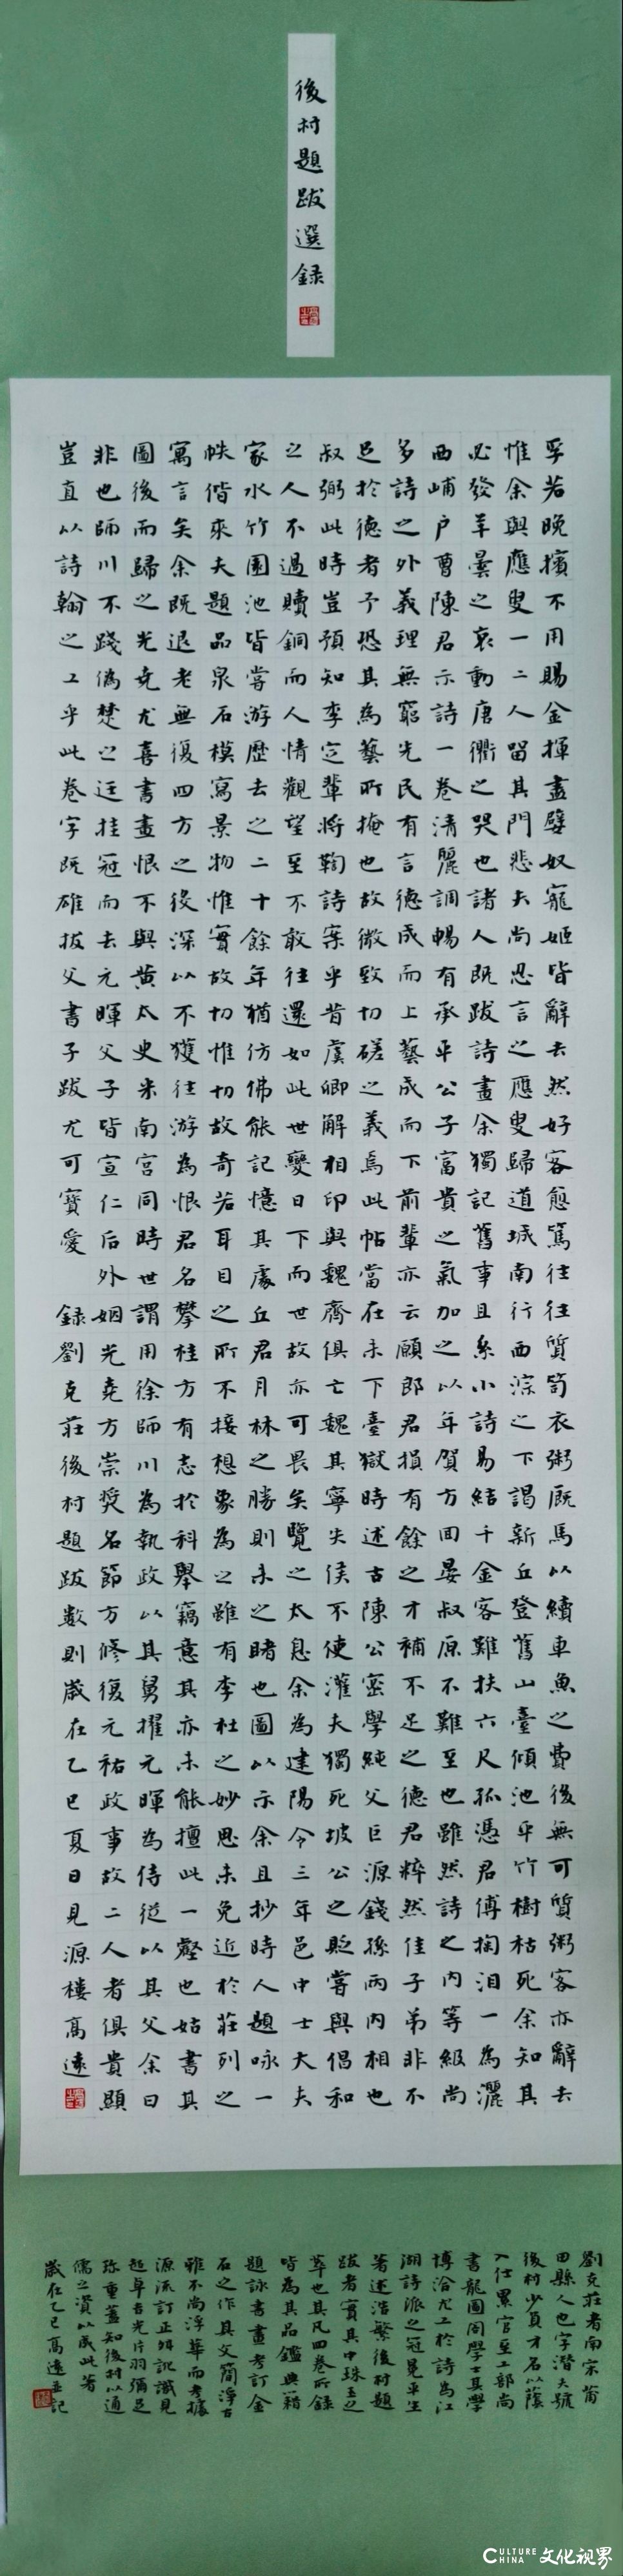 後村題跋選録
孚若晚擯不用賜金揮盡嬖奴寵姬皆辭去然好客愈篤往往質笥衣粥廐馬以續車魚之費後無可質粥客亦辭去
惟余與應叟一二人留其門悲夫尚忍言之應叟歸道城南行西淙之下謁新丘登舊山臺傾池平竹樹枯死余知其
必發羊曇之哀動唐衢之哭也諸人既跋詩畫余獨記舊事且系小詩易結千金客難扶六尺孤憑君傅掬泪一為灑
西峬户曹陳君示詩一卷清麗調暢有承平公子富貴之氣加之以年賀方回晏叔原不難至也雖然詩之内等級尚
多詩之外義理無窮先民有言德成而上藝成而下前輩亦云願郎君損有餘之才補不足之德君粹然佳子弟非不
足於德者予恐其為藝所掩也故微致切磋之義焉此帖當在未下臺獄時述古陳公密學純父巨源錢孫兩内相也
叔弼此時豈預知李定輩將鞫詩案乎昔虞卿解相印與魏齊俱亡魏其寧失侯不使灌夫獨死坡公之貶嘗與倡和
之人不過贖銅而人情觀望至不敢往還如此世變日下而世故亦可畏矣覽之太息余為建陽令三年邑中士大夫
家水竹園池皆嘗游歷去之二十餘年猶仿佛能記憶其處丘君月林之勝則未之睹也圖以示余且抄時人題咏一
帙偕來夫題品泉石模寫景物惟實故切惟切故奇若耳目之所不接想象為之雖有李杜之妙思未免近於莊列之
寓言矣余既退老無復四方之役深以不獲往游為恨君名攀桂方有志於科舉竊意其亦未能擅此一壑也姑書其
圖後而歸之光堯尤喜書畫恨不與黄太史米南宮同時世謂用徐師川為執政以其舅擢元暉為侍從以其父余曰
非也師川不踐偽楚之廷挂冠而去元暉父子皆宣仁后外姻光堯方崇奬名節方修復元祐政事故二人者俱貴顯
豈直以詩翰之工乎此卷字既雄拔父書子跋尤可寶愛 録劉克莊後村題跋數則歲在乙巳夏日見源樓高遠
劉克莊者南宋莆
田縣人也字潜夫號
後村少負才名以蔭
入仕累官至工部尚
書龍圖閣學士其學
博洽尤工於詩為江
湖詩派之冠冕平生
著述浩繁後村題
跋者實其中珠玉之
萃也其凡四卷所録
皆為其品鑑典籍
題詠書畫考訂金
石之作其文簡淨古
雅不尚浮華而考據
源流訂正舛訛識見
超卓吉光片羽彌足
珍重蓋知後村以通
儒之資以成此著
歲在乙巳高遠并記
CULTURE CHINA 文化视界